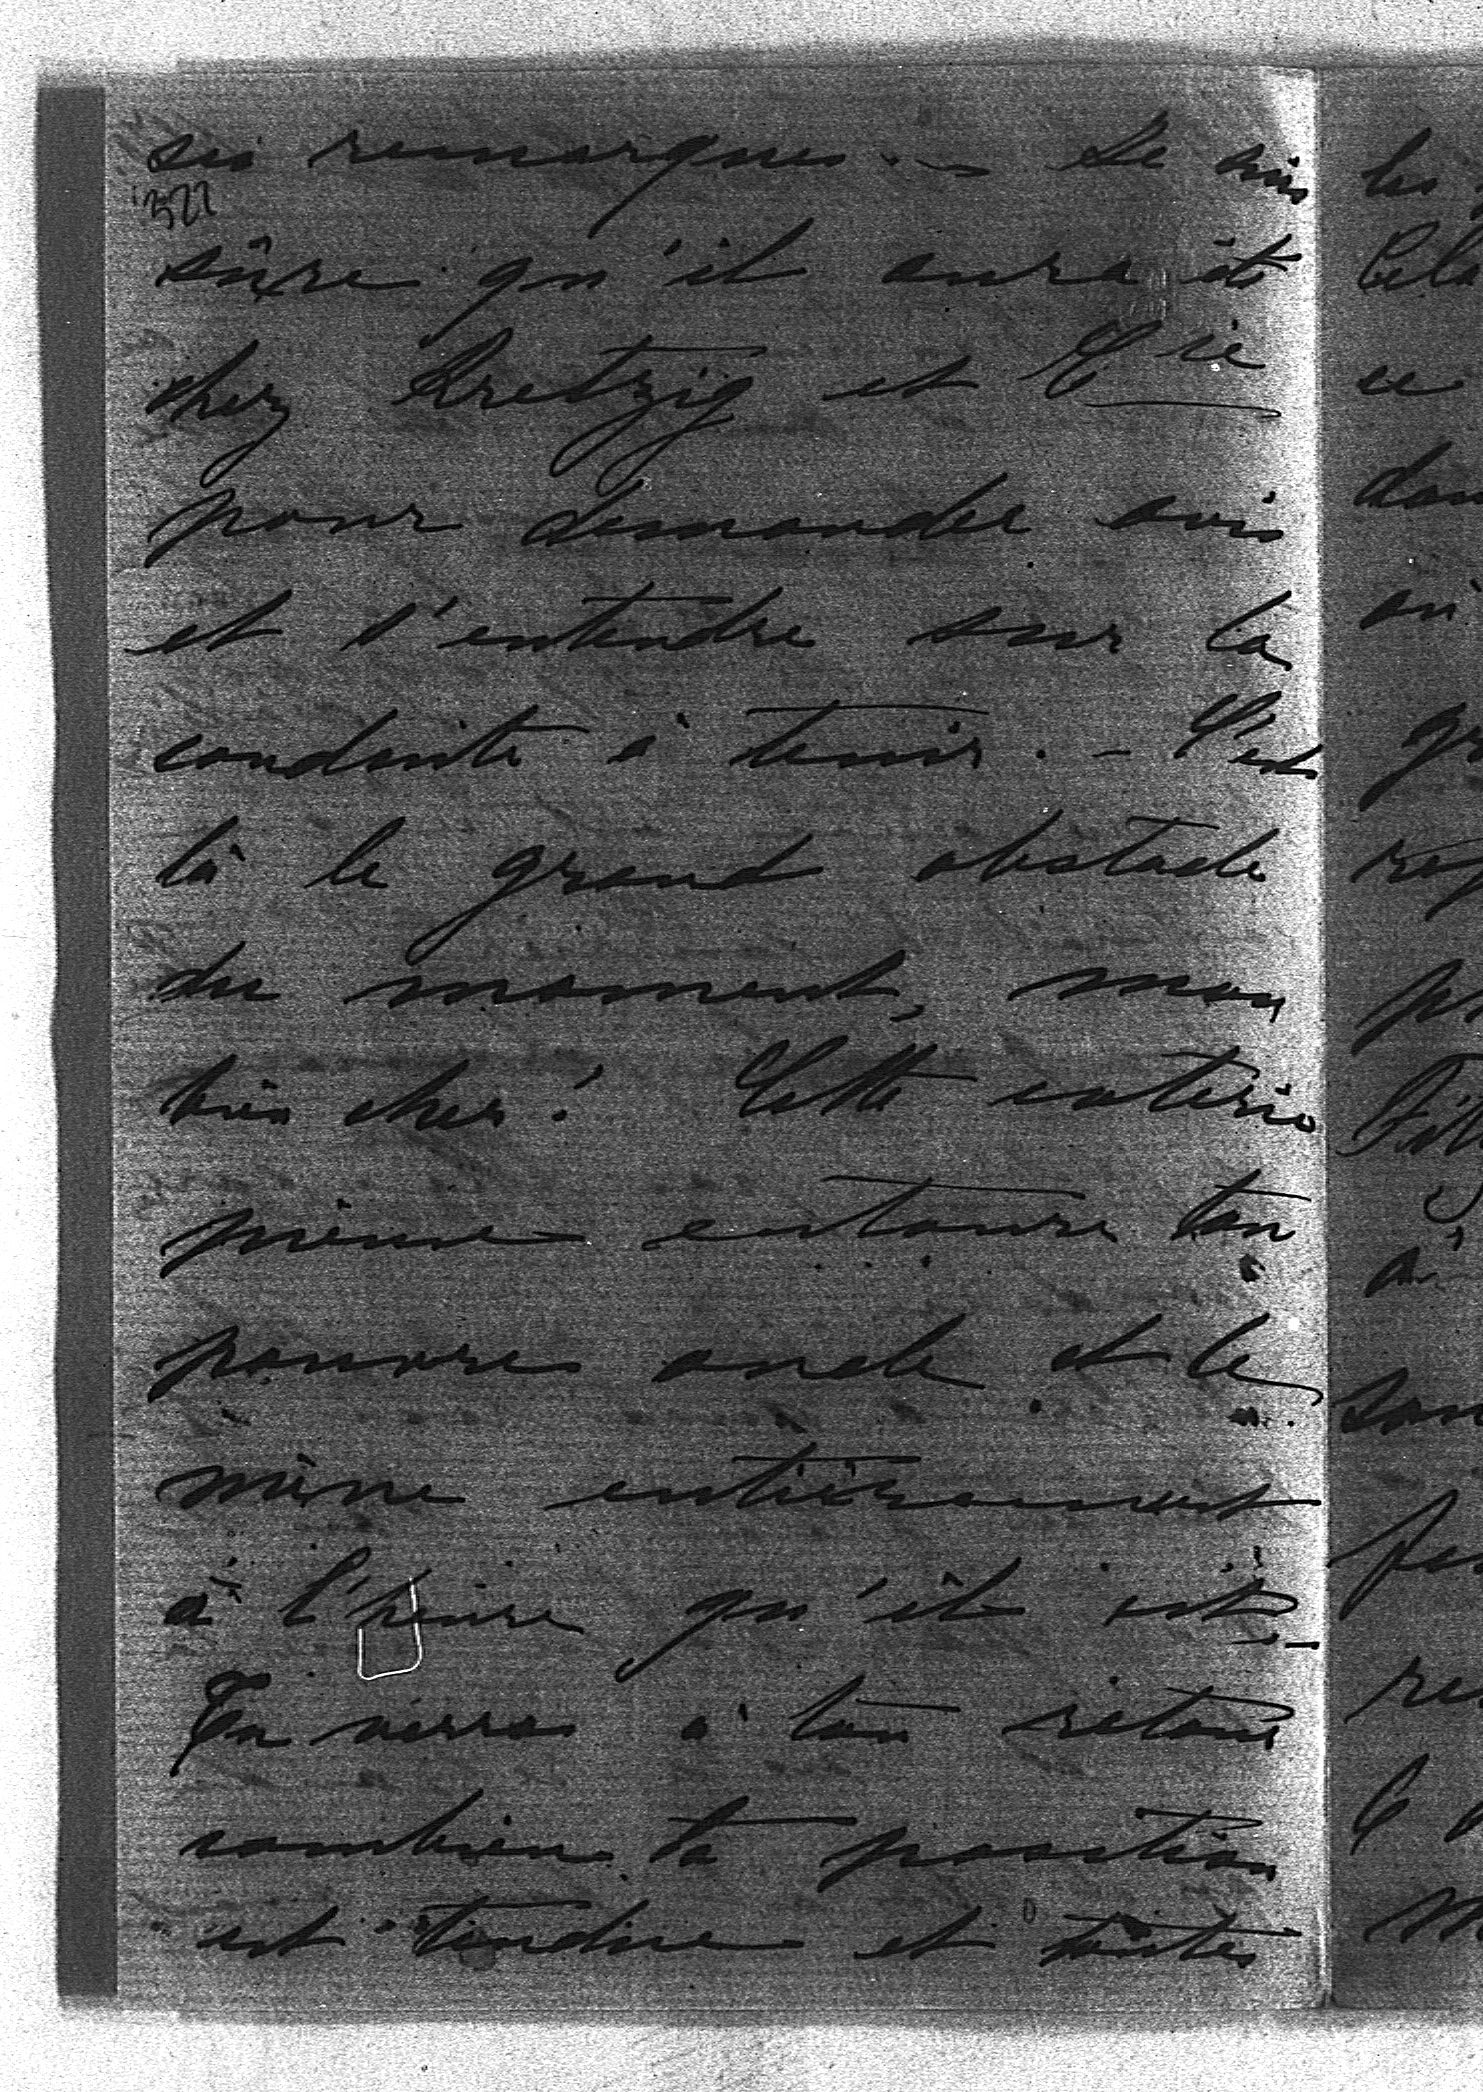 ses remarques. — Je suis
322
sûre qu'il aura été
chez Kretzig et Cie
pour demander avis
et s'entendre sur la
conduite à tenir. — C'est
là le grand obstacle
du moment, mon
bien cher! Cette
entoure ton
pauvre oncle et le
mène entièrement
à l'heure qu'il est. —
Tu verras à ton retour
combien ta position
est tendue et toutes
les
Cela
ce